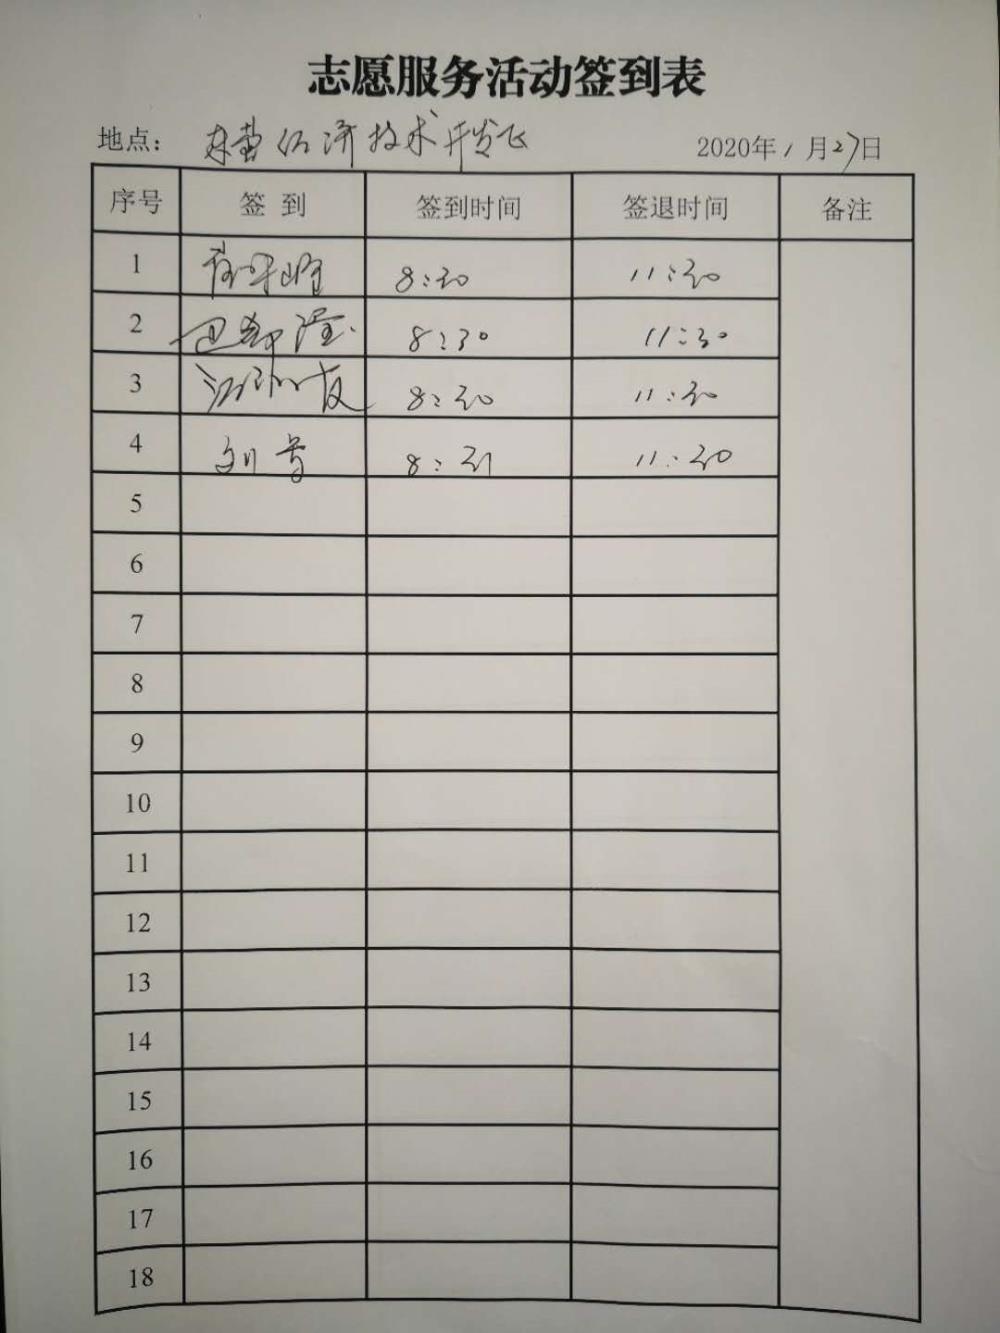 志愿服务活动签到表
地点： 经济技术开发区 2020年1月27日
序号 签到 签到时间 签退时间 备注
1 8:30 11:30
2 8:30 11:30
3 8:30 11:30
4 8:31 11:30
5
6
7
8
9
10
11
12
13
14
15
16
17
18